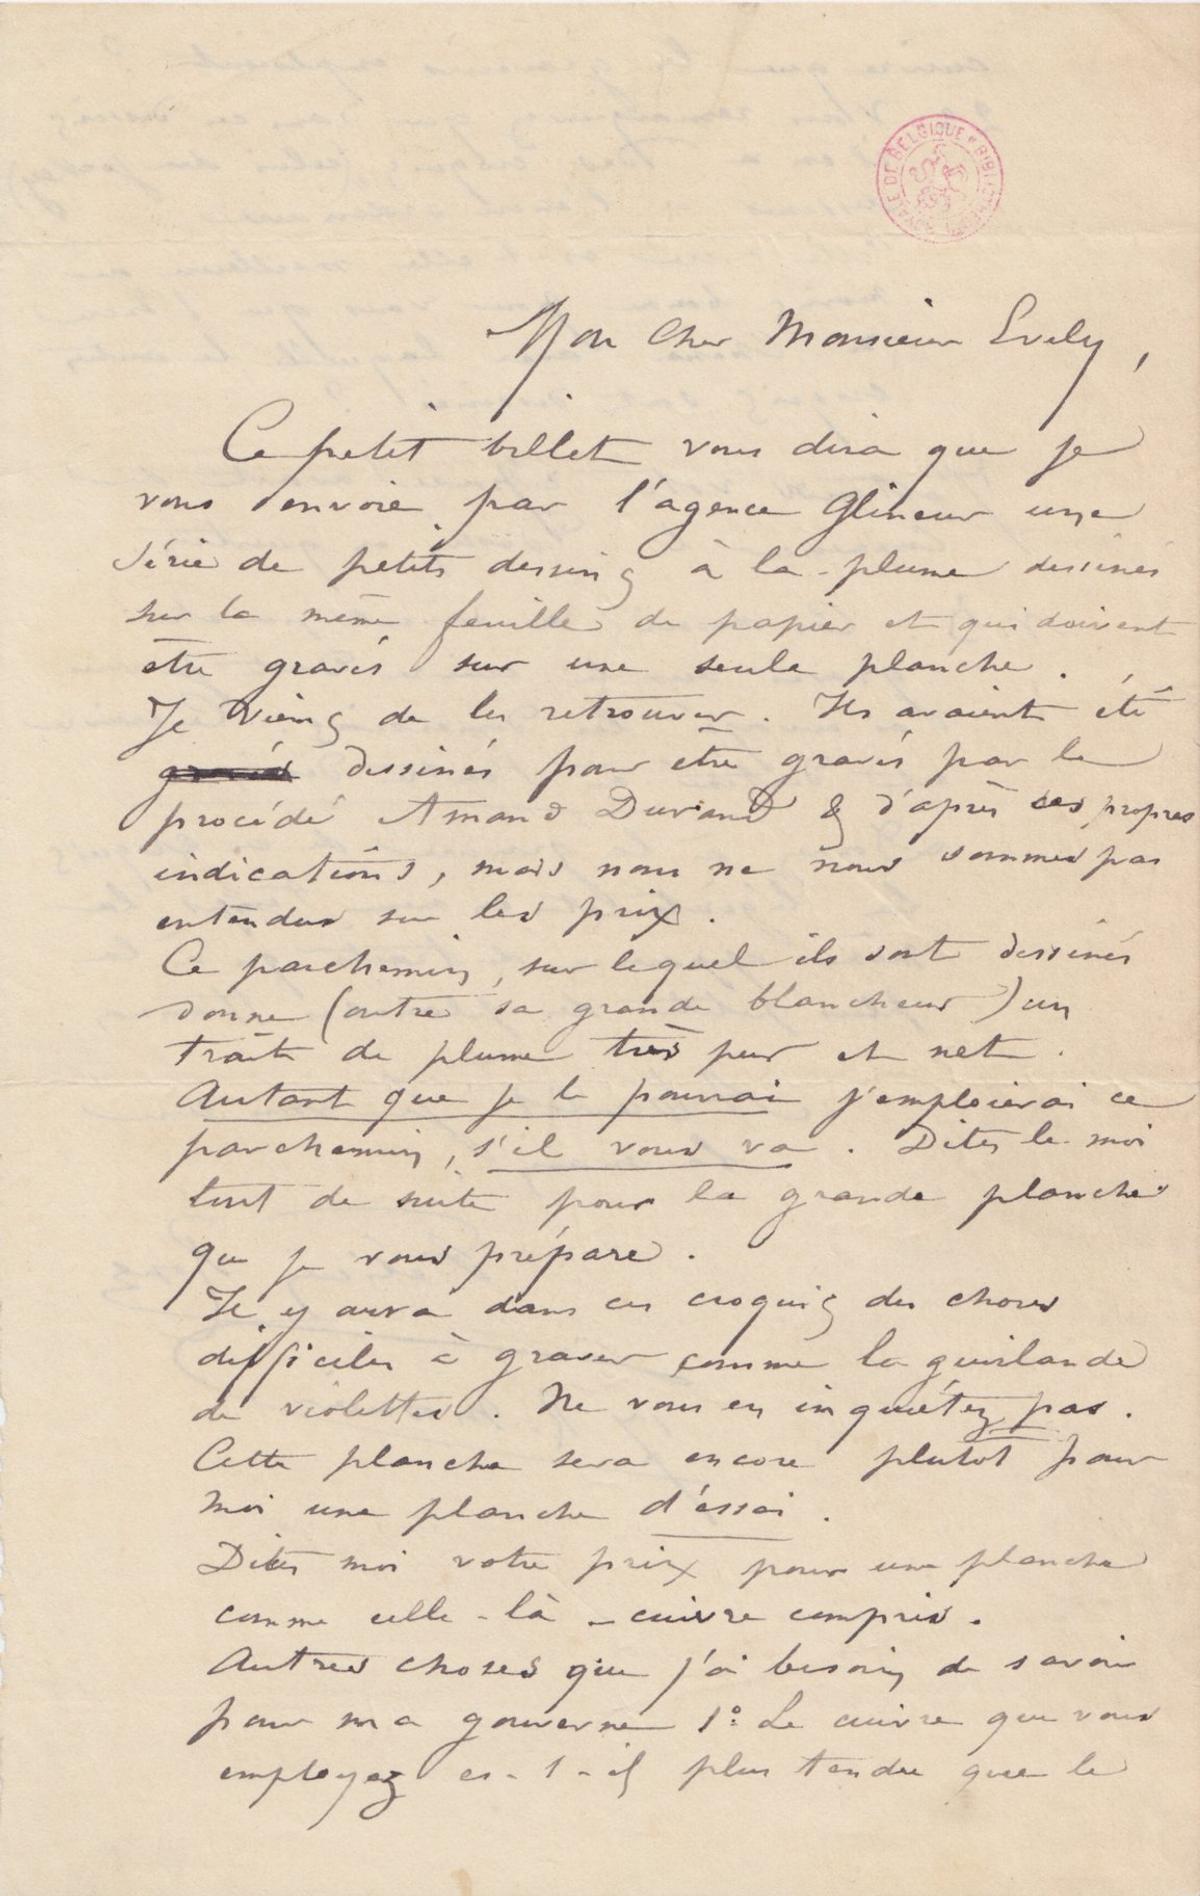 Mon Cher Monsieur Evely,
Ce petit billet vous dira que je
vous envoie par l'agence Glineur une
série de petits dessins à la plume dessinés
sur la même feuille de papier et qui doivent
être gravés sur une seule planche.
Je viens de les retrouver. Ils avaient été
gravés dessinés pour être gravés par le
procédé Amand Durand & d'après ses propres
indications, mais nous ne nous sommes pas
entendus sur les prix.
Ce parchemin, sur lequel ils sont dessinés
donne (outre sa grande blancheur) un
trait de plume très pur et net.
Autant que je le pourrai j'emploierai ce
parchemin, s'il vous va. Dites le moi
tout de suite pour la grande planche
que je vous prépare.
Il y aura dans ces croquis des choses
difficiles à graver comme la guirlande
de violettes. Ne vous en inquiétez pas.
Cette planche sera encore plutot pour
moi une planche d'éssai.
Dites moi votre prix pour une planche
comme celle-là - cuivre compris.
Autres choses que j'ai besoin de savoir
pour ma gouverne 1° Le cuivre que vous
employez es-t-il plus tendre que le
ROYALE DE BELGIQUE * BIBLIOTHEQUE